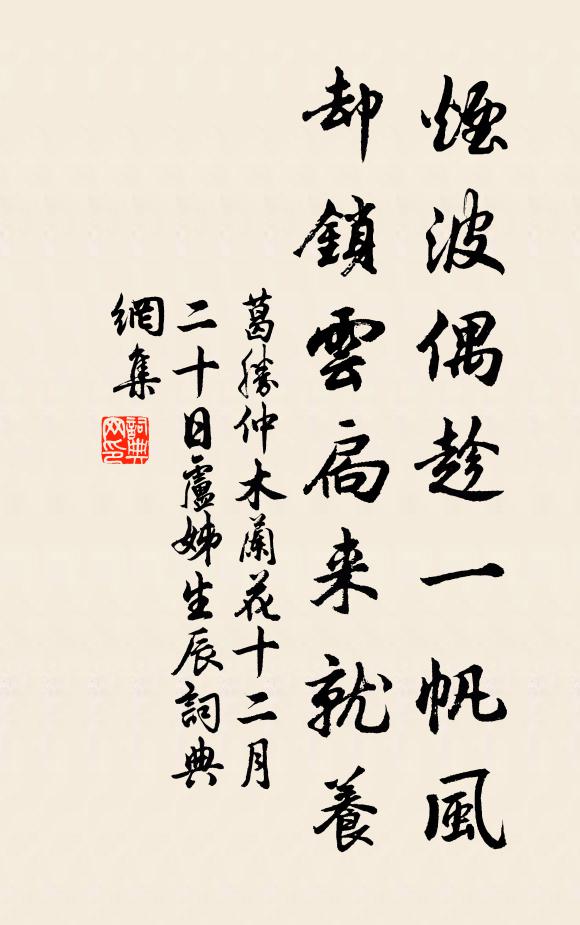 煙波偶趁一帆風
却鎖雲扃来就養
葛勝仲木蘭花十二月
二十日盧姊生辰詞典
網集
詞典
网印